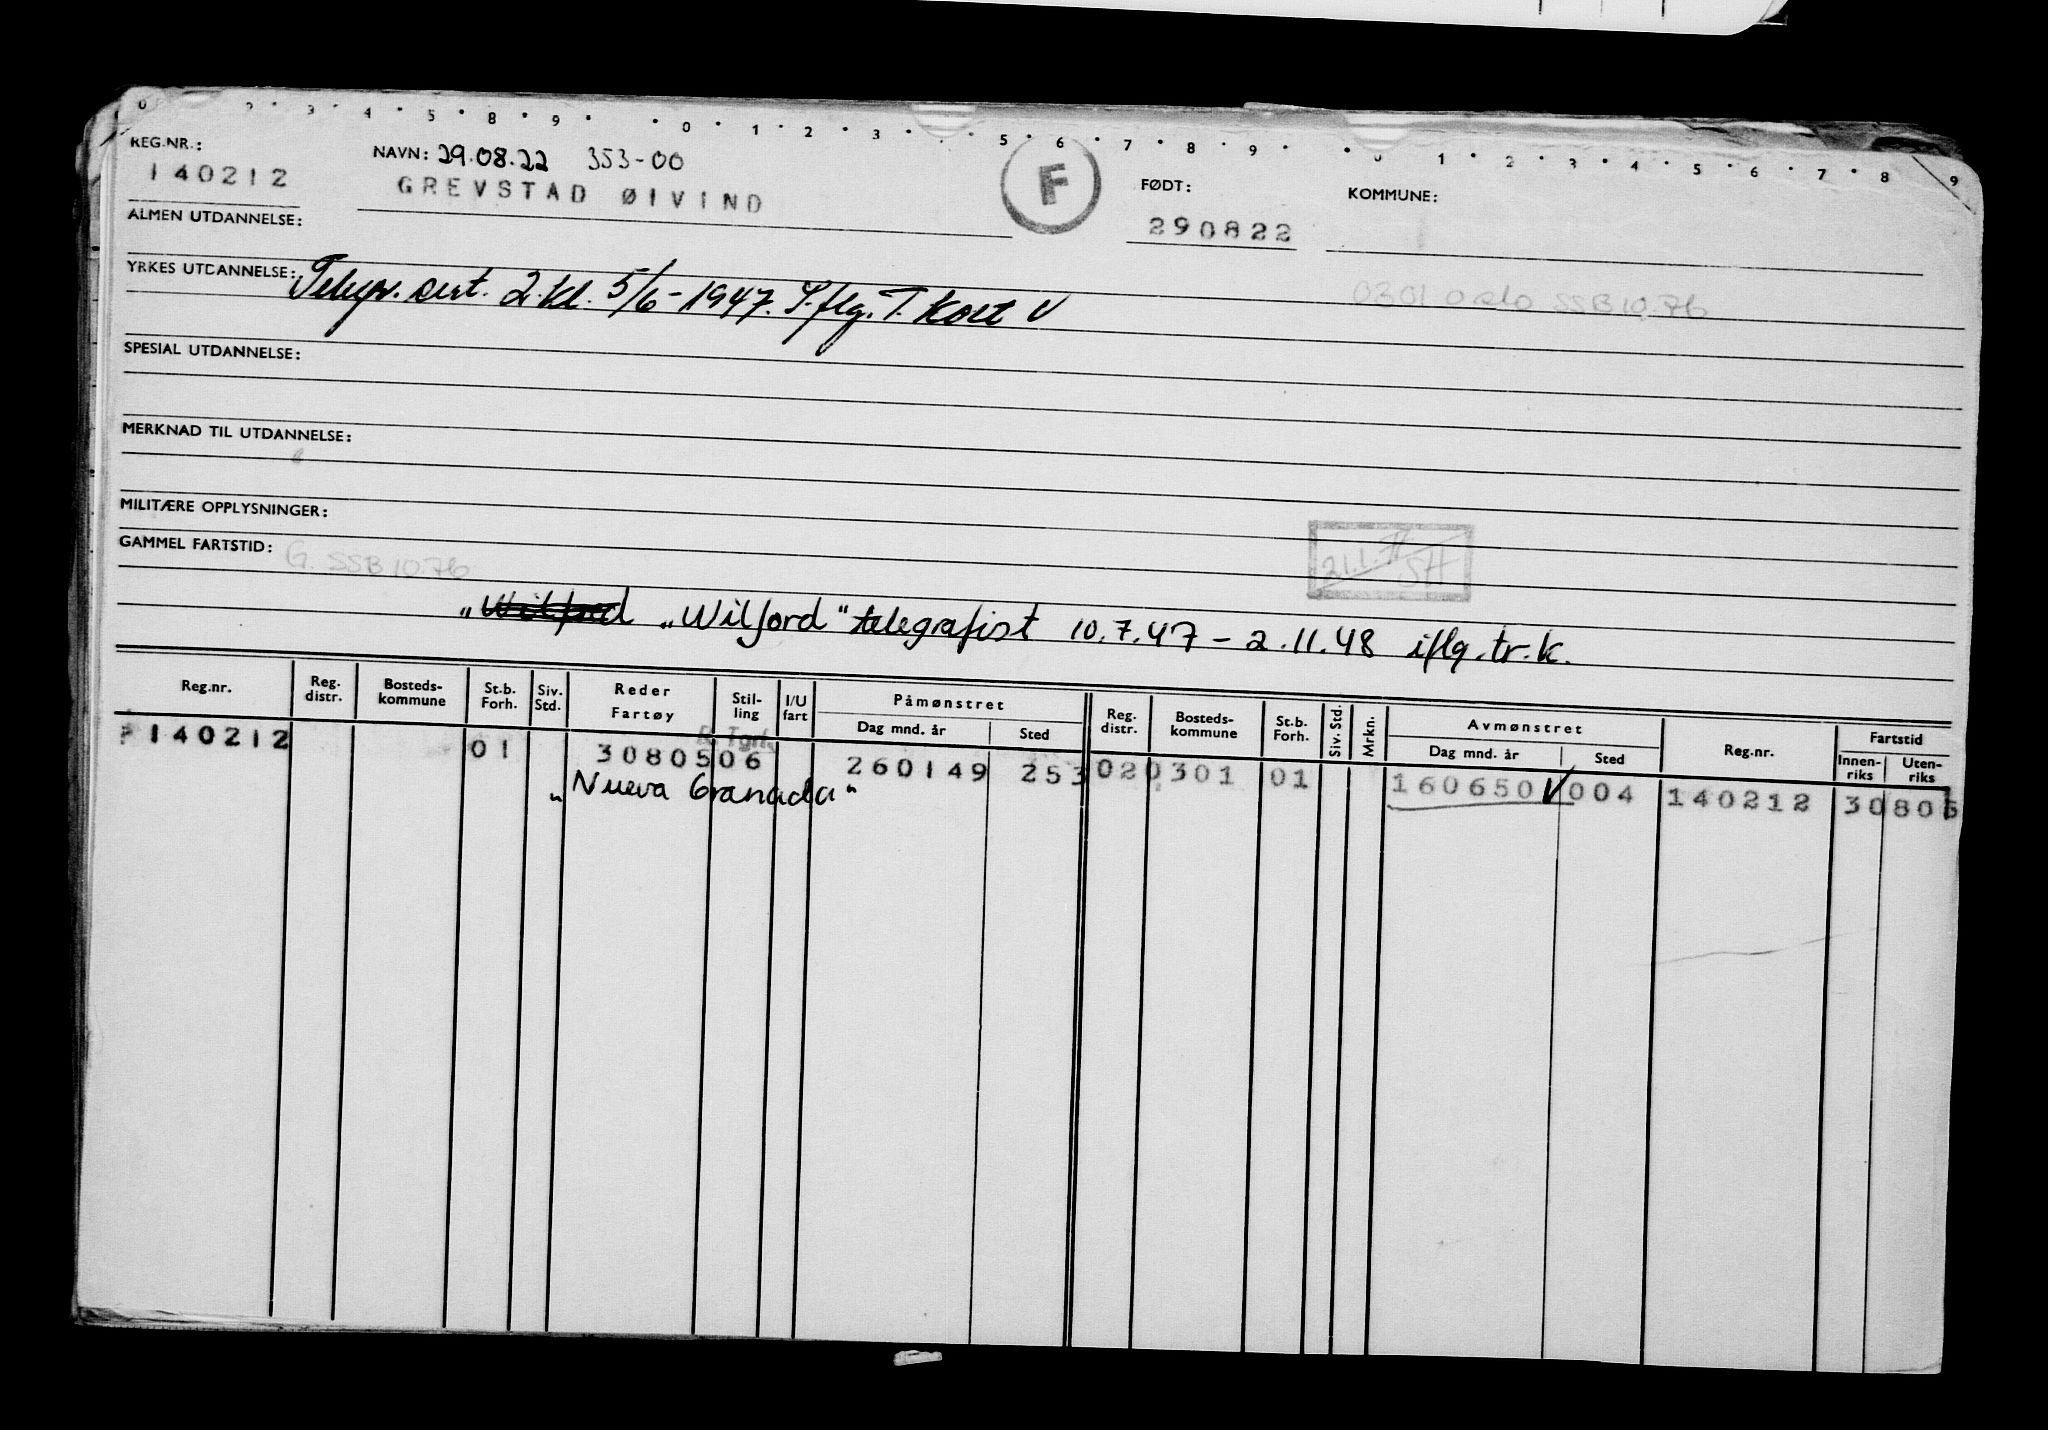 0 · 2 · 3 · 4 · 5 · 8 · 9 · · 0 · 1 · 2 · 3 · · 5 · 6 · 7 · 8 · 9 · · 0 · 1 · 2 · 3 · 4 · 5 · 6 · 7 · 8 9
REG.NR.: NAVN: 29.08.22 353-00
140212 GREVSTAD ØIVIND F FØDT: 290822 KOMMUNE:
ALMEN UTDANNELSE:
YRKES UTDANNELSE: Telegr. sert. 2.kl. 5/6-1947. I.flg. T. kort V
0301 Oslo SSB 10.76
SPESIAL UTDANNELSE:
MERKNAD TIL UTDANNELSE:
MILITÆRE OPPLYSNINGER:
GAMMEL FARTSTID: G. SSB 10.76
21.1.77 SH
„Wilford „Wilford" telegrafist 10.7.47 - 2.11.48 iflg. tr. k.
Reg.nr. Reg. distr. Bosteds-kommune St.b. Forh. Siv. Std. Reder Fartøy Stil-ling I/U fart Påmønstret Dag mnd. år Sted Reg. distr. Bosteds-kommune St.b. Forh. Siv. Std. Mrkn. Avmønstret Dag mnd. år Sted Reg.nr. Fartstid Innen-riks Uten-riks
140212 01 3080506 260149 253 02 0301 01 160650 V 004 140212 30805
„Nueva Granada"